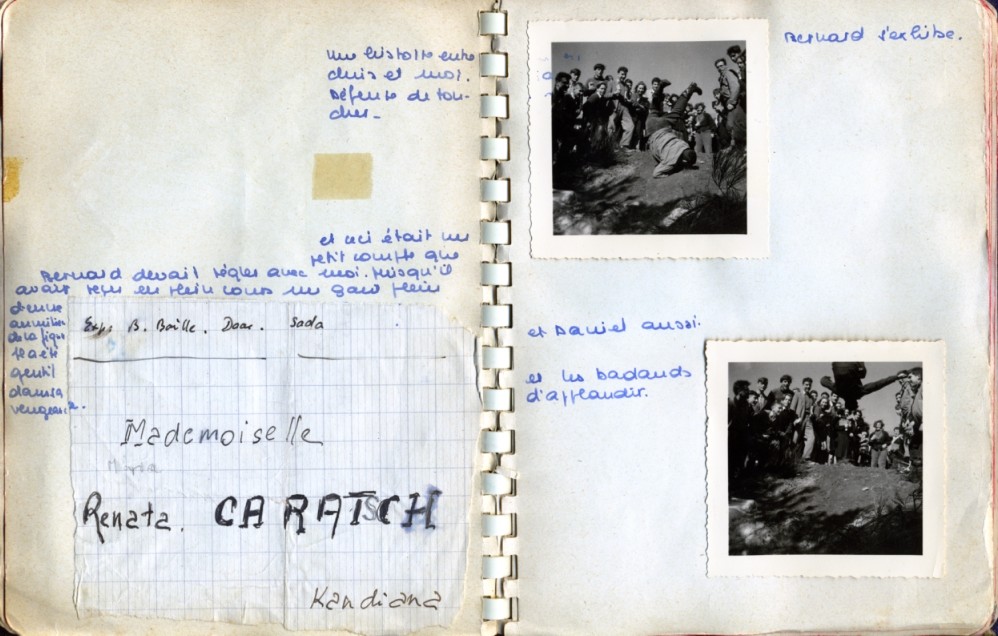 une histoire entre
chris et moi.
Défense de tou-
cher -
et ceci était un
petit compte que
Bernard devait régler avec moi. Puisqu'il
avait reçu en plein cours un gant plein
d'encre
au milieu
de la figure
Il a été
gentil
dans sa
vengeance.
Exp: B. Baille. Doar. Sada
Mademoiselle
Renata. CARATSCH
Kandiana
Bernard s'exhibe.
et Daniel aussi.
et les badauds
d'applaudir.